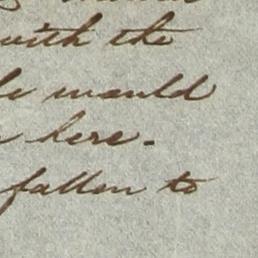 with the
would
here.
fallen to